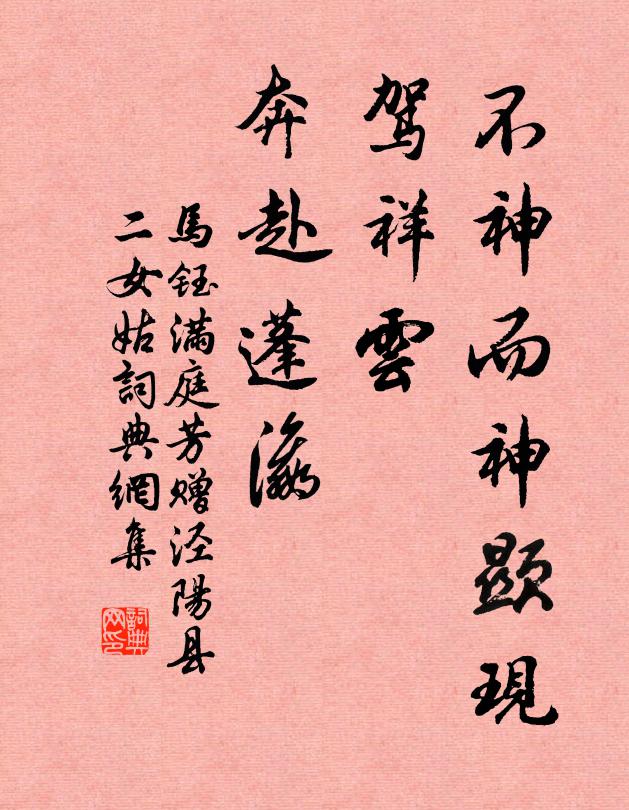 不神而神顯現
駕祥雲
奔赴蓬瀛
馬鈺滿庭芳赠涇陽县
二女姑詞典網集
詞典
网印